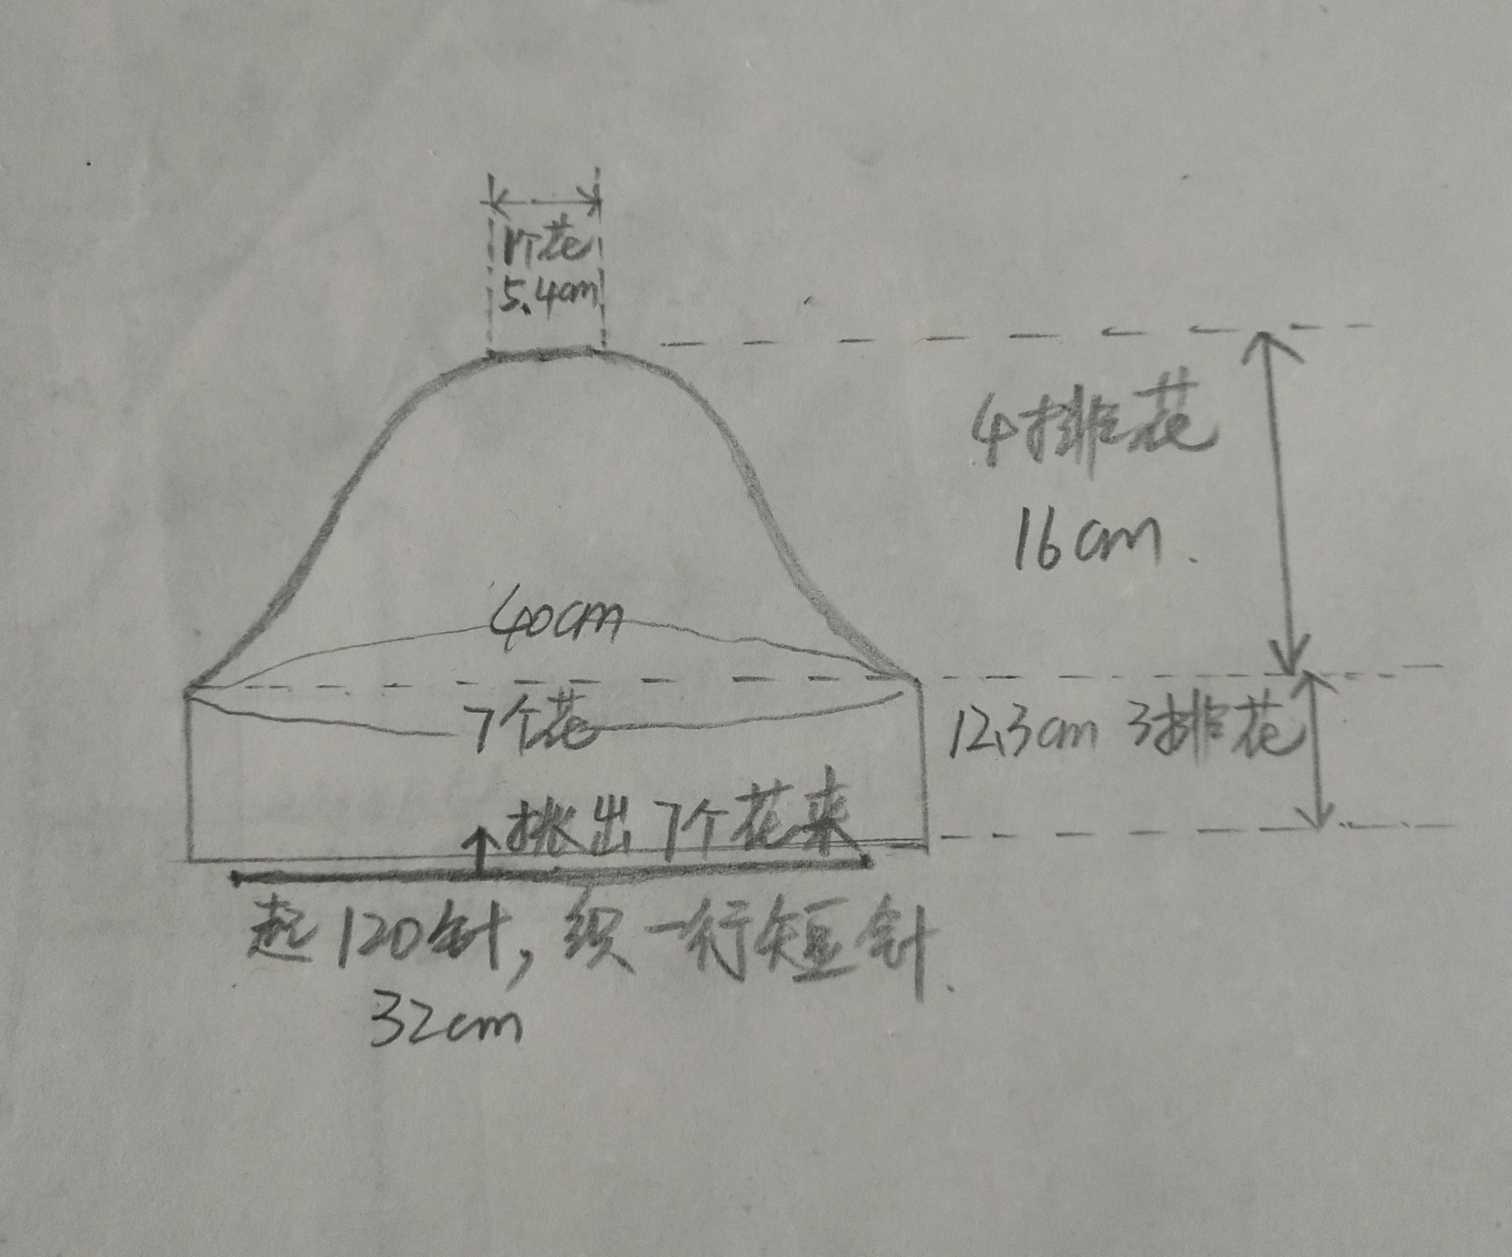 1个花
5.4cm
4排花
16cm.
40cm
7个花
12.3cm 3排花
挑出7个花来
起120针,织一行短针.
32cm